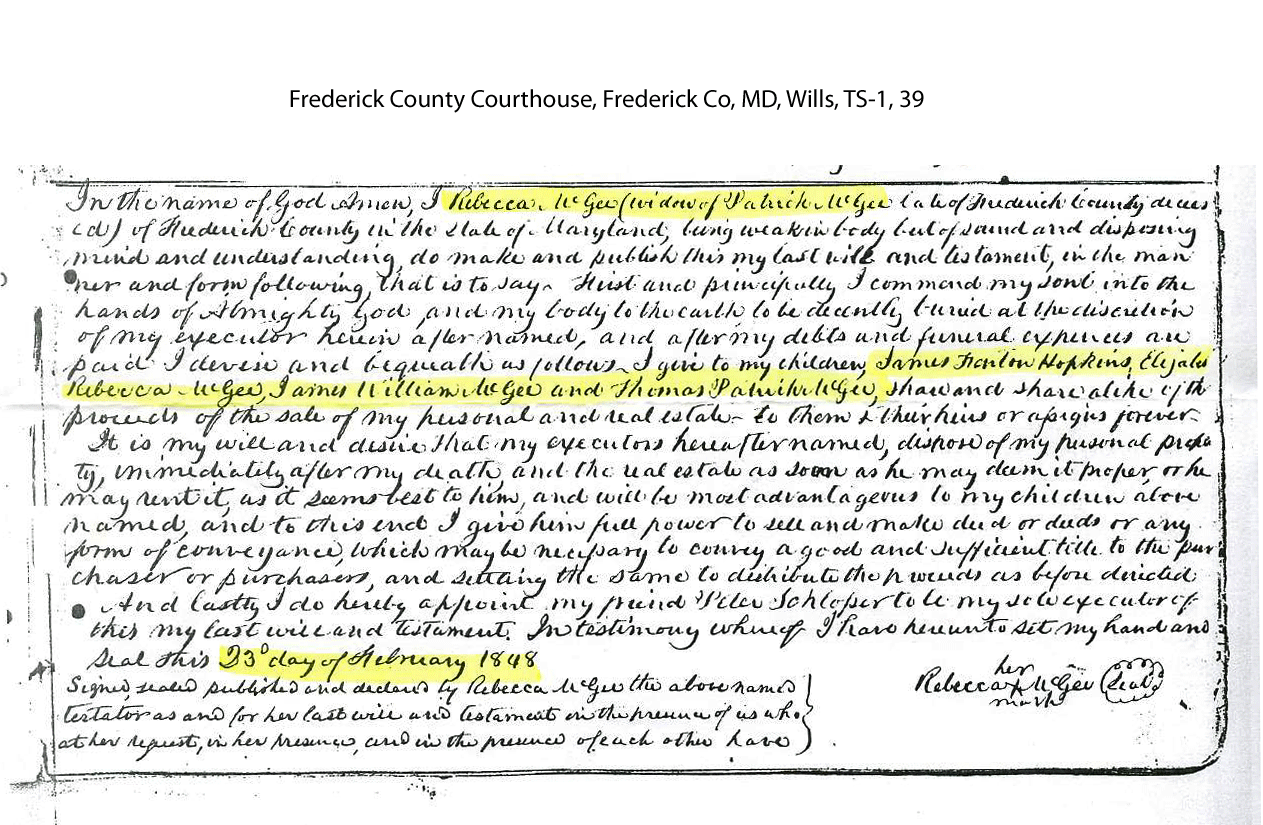 Frederick County Courthouse, Frederick Co, MD, Wills, TS-1, 39
In the name of God Amen, I Rebecca McGee (widow of Patrick McGee late of Frederick County deceas
ed) of Frederick County in the state of Maryland, being weak in body but of sound and disposing
mind and understanding, do make and publish this my last will and testament, in the man
ner and form following, that is to say - First and principally I commend my soul into the
hands of Almighty God, and my body to the earth to be decently buried at the discretion
of my executor herein after named, and after my debts and funeral expences are
paid I devise and bequeath as follows - I give to my children, James Hopkins,
Rebecca McGee, James William McGee and Thomas Patrick McGee, share and share alike of th
proceeds of the sale of my personal and real estate - to them & their heirs or assigns forever -
It is my will and desire that my executors hereafter named, dispose of my personal prope
ty, immediately after my death, and the real estate as soon as he may deem it proper, or he
may rent it, as it seems best to him, and will be most advantageous to my children above
named, and to this end I give him full power to sell and make deed or deeds or any
form of conveyance, which may be necessary to convey a good and sufficient title to the pur
chaser or purchasers, and setting the same to distribute the proceeds as before directed
And lastly I do hereby appoint my friend Peter Schlosser to be my sole executor of
this my last will and testament. In testimony whereof I have hereunto set my hand and
seal this 23d day of February 1848
her
Rebecca X McGee (Seal)
mark
Signed, sealed published and declared by Rebecca McGee the above named
testator as and for her last will and testament in the presence of us who
at her request, in her presence, and in the presence of each other have